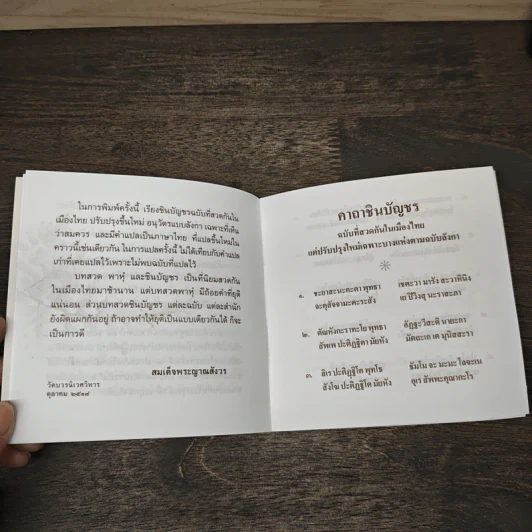 ในการพิมพ์ครั้งนี้ เรียงชินบัญชรฉบับที่สวดกันใน
เมืองไทย ปรับปรุงขึ้นใหม่ อนุวัตรแบบลังกา เฉพาะที่เห็น
ว่าสมควร และมีคำแปลเป็นภาษาไทย ที่แปลขึ้นใหม่ใน
คราวนี้เช่นเดียวกัน ในการแปลครั้งนี้ ไม่ได้เทียบกับคำแปล
เก่าที่เคยแปลไว้เพราะไม่พบฉบับที่แปลไว้
บทสวด พาหุํ และชินบัญชร เป็นที่นิยมสวดกัน
ในเมืองไทยมาช้านาน แต่บทสวดพาหุํ มีถ้อยคำที่ยุติ
แน่นอน ส่วนบทสวดชินบัญชร แต่ละฉบับ แต่ละสำนัก
ยังผิดแผกกันอยู่ ถ้าอาจทำให้ยุติเป็นแบบเดียวกันได้ ก็จะ
เป็นการดี
สมเด็จพระญาณสังวร
วัดบวรนิเวศวิหาร
ตุลาคม ๒๕๑๗
คาถาชินบัญชร
ฉบับที่สวดกันในเมืองไทย
แต่ปรับปรุงใหม่เฉพาะบางแห่งตามฉบับลังกา
๑. ชะยาสะนะคะตา พุทธา เชตะวา มารัง สะวาหินิง
จะตุสัจจามะตะระสัง เย ปิวิงสุ นะราสะภา
๒. ตัณหังกะราทะโย พุทธา อัฏฐะวีสะติ นายะกา
สัพเพ ปะติฏฐิตา มัยหัง มัตถะเก เต มุนิสสะรา
๓. สิเร ปะติฏฐิโต พุทโธ ธัมโม จะ มะมะ โลจะเน
สังโฆ ปะติฏฐิโต มัยหัง อุเร สัพพะคุณากะโร